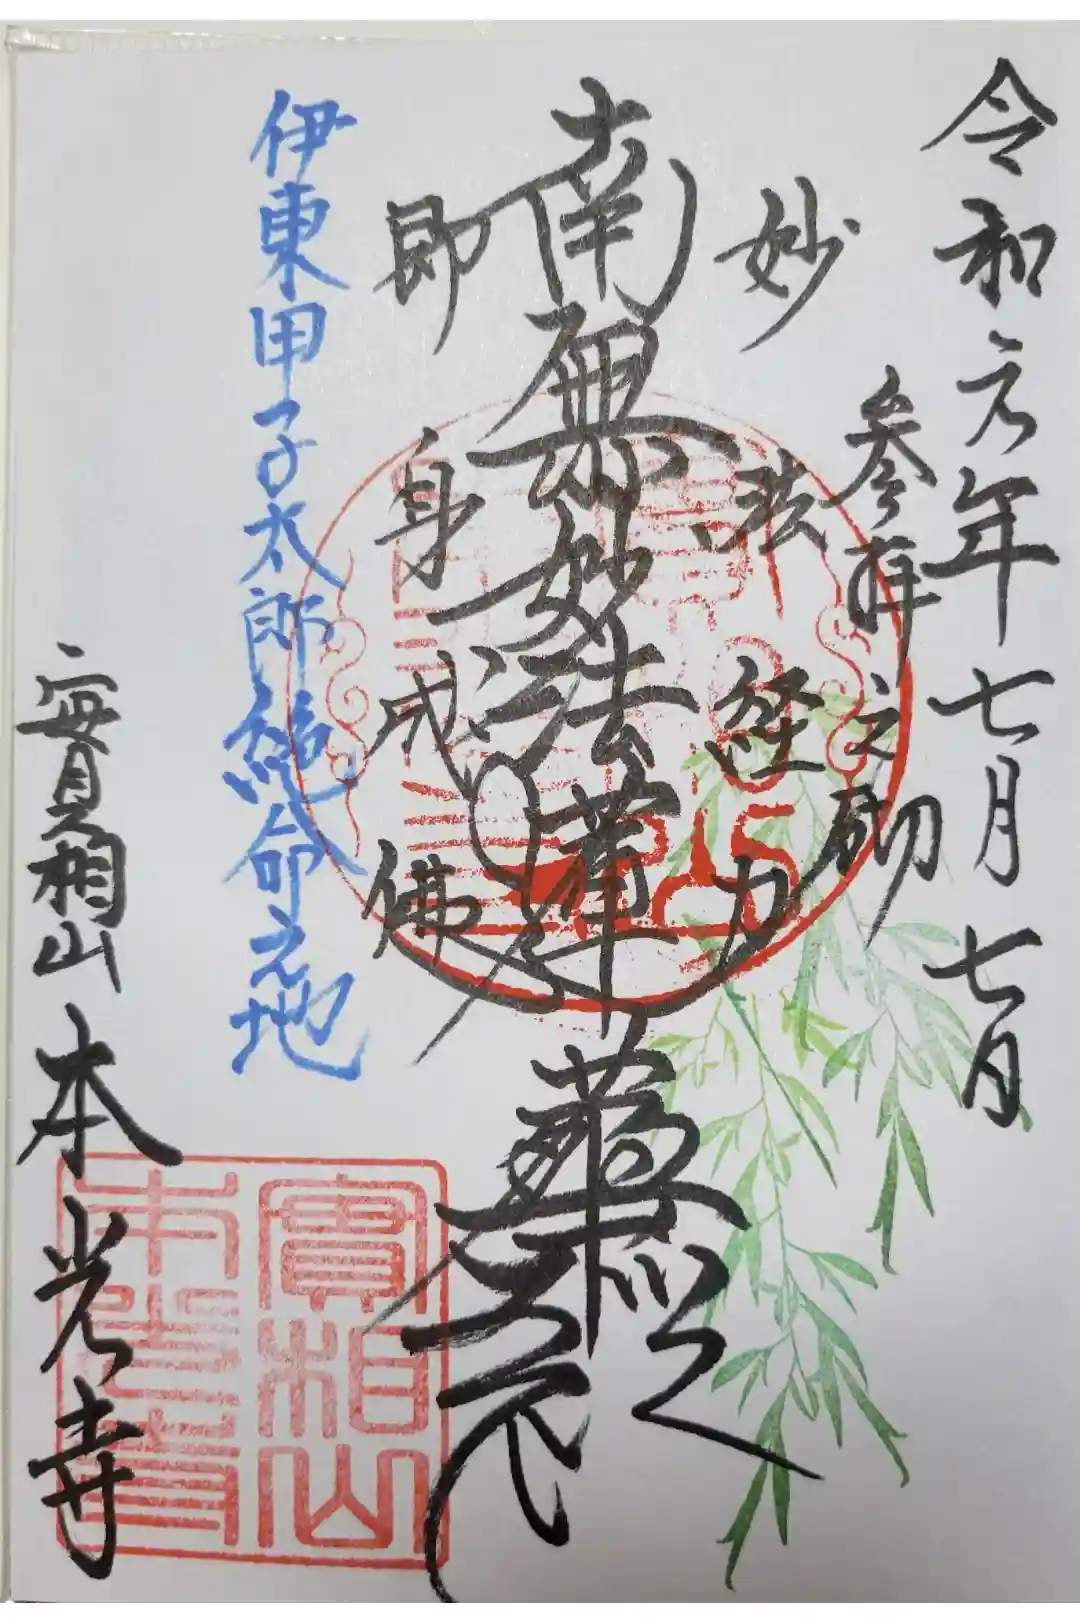 令和元年七月七日
参拝之砌
妙法経力
南無妙法蓮華経
即身成佛
伊東甲子太郎絶命之地
實相山本光寺
實相山
本光寺